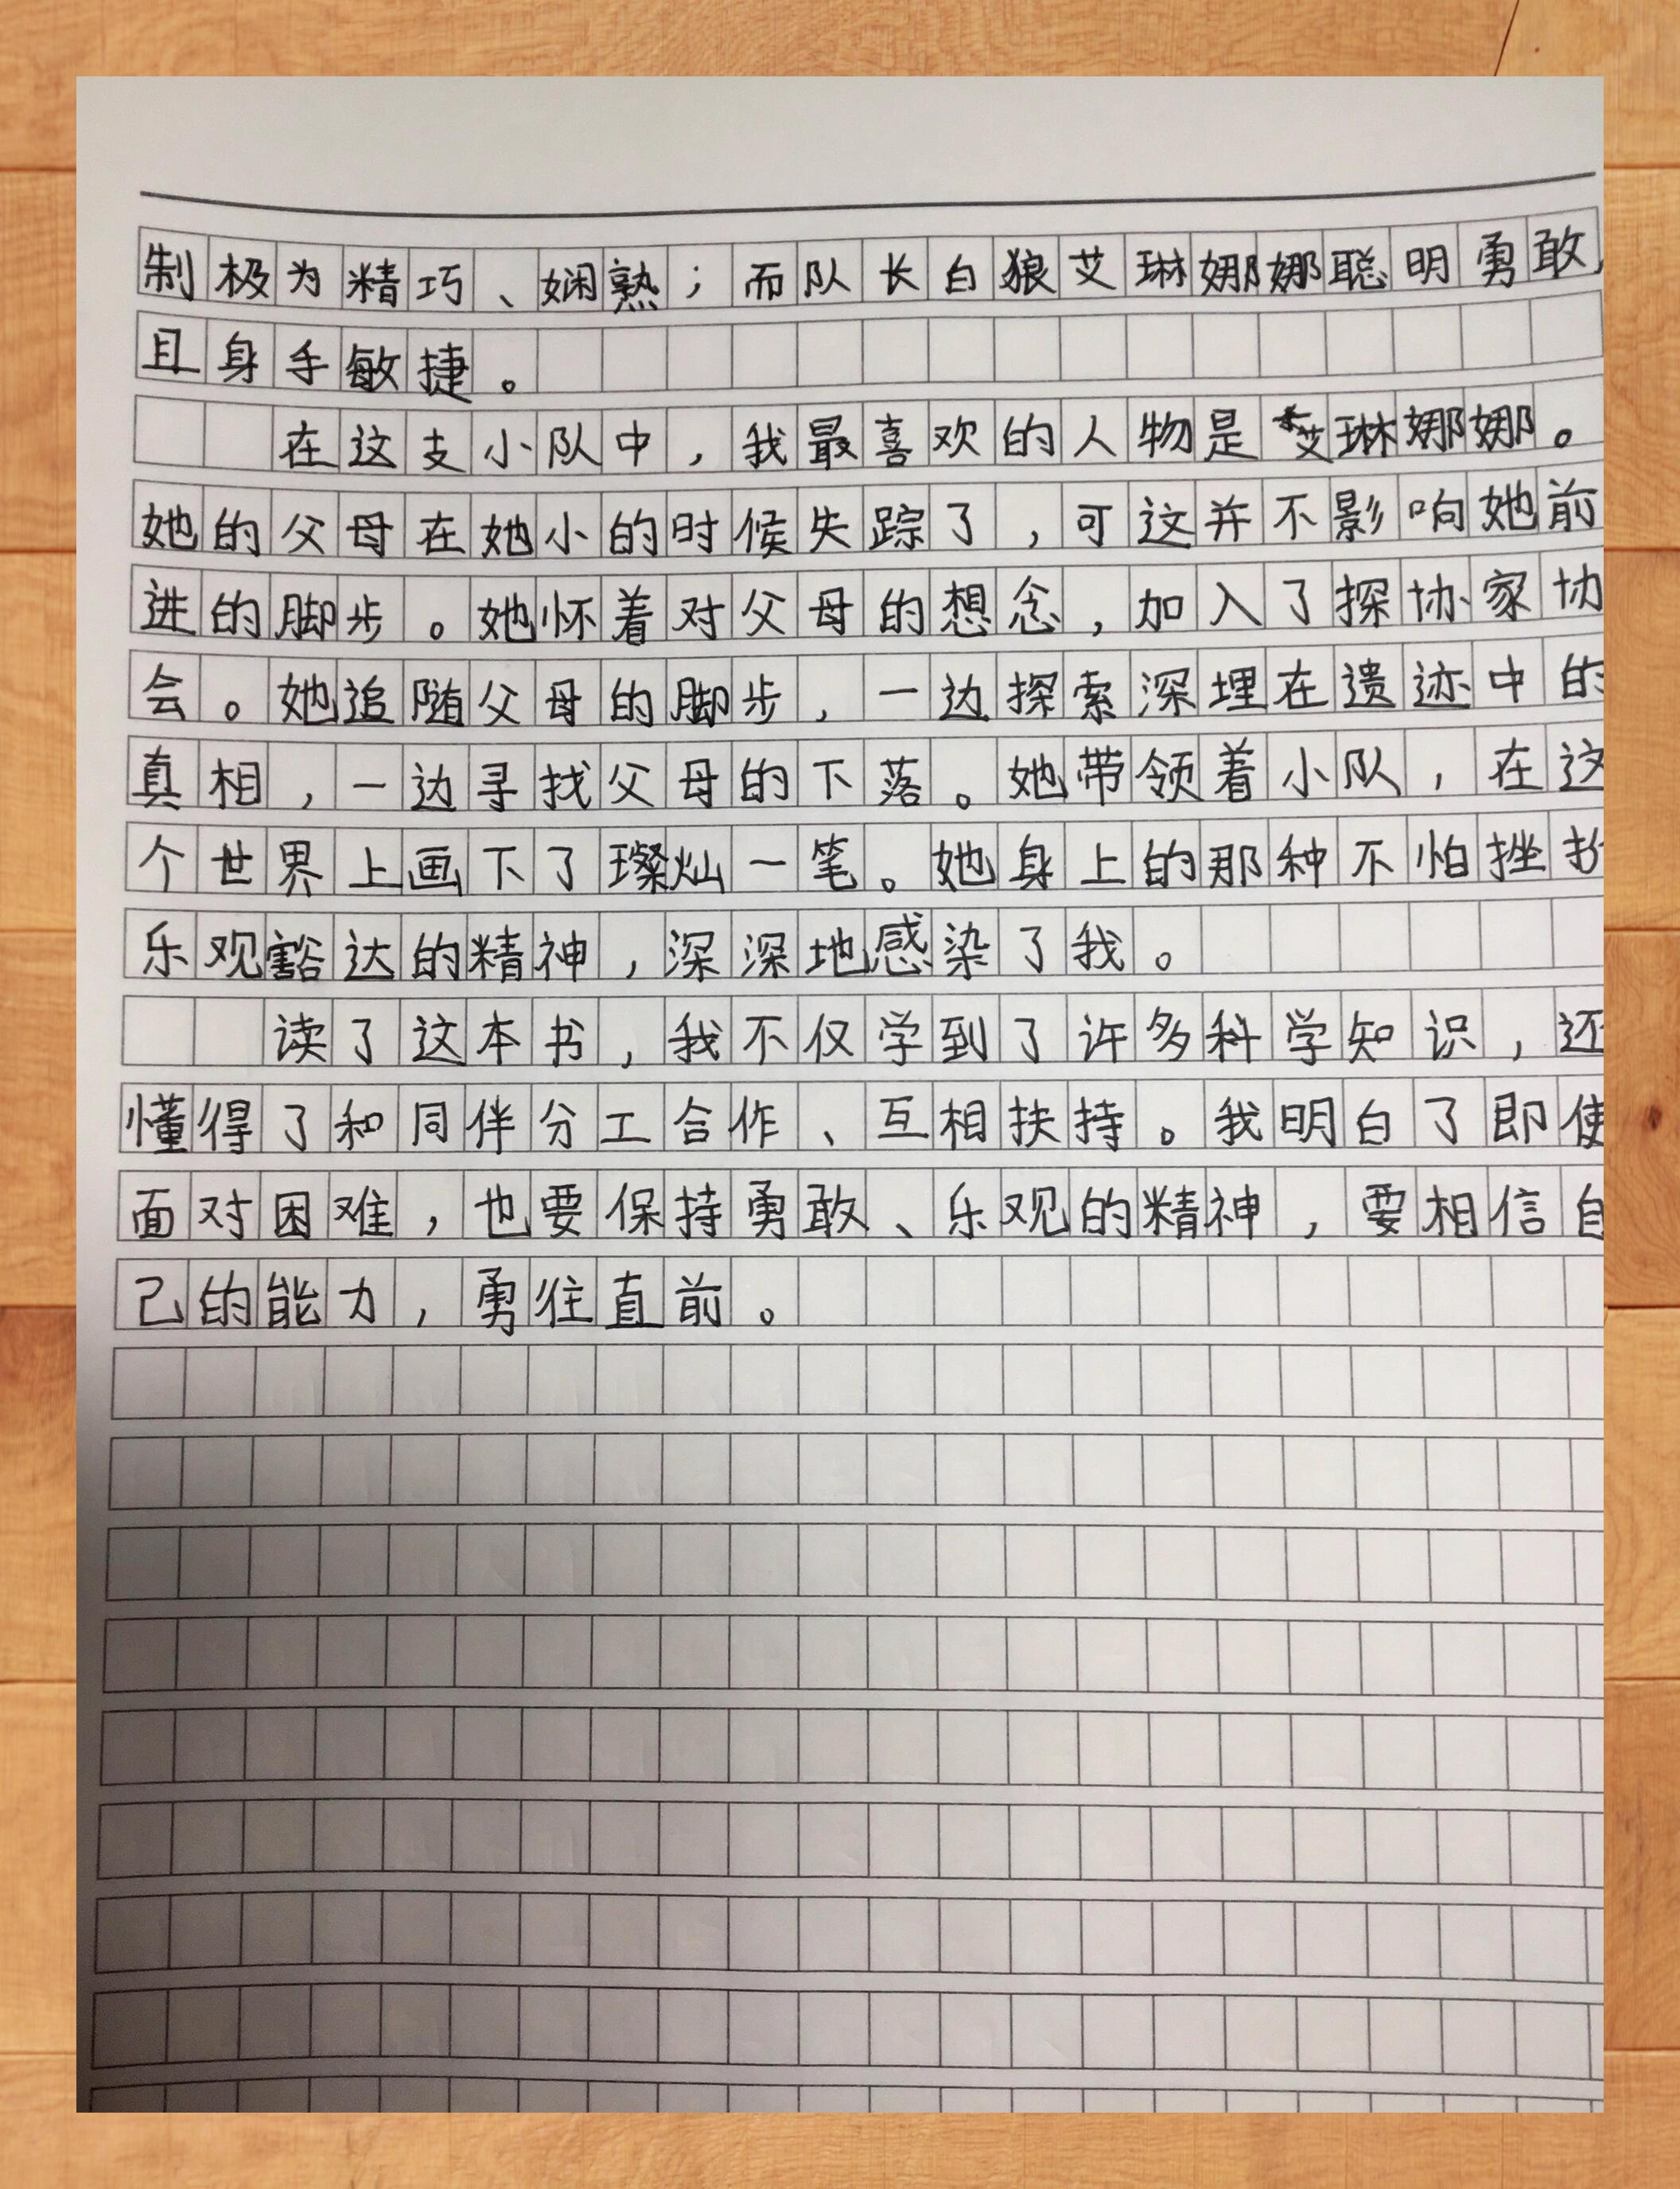 制极为精巧、娴熟；而队长白狼艾琳娜娜聪明勇敢，
且身手敏捷。
在这支小队中，我最喜欢的人物是艾琳娜娜。
她的父母在她小的时候失踪了，可这并不影响她前
进的脚步。她怀着对父母的想念，加入了探协家协
会。她追随父母的脚步，一边探索深埋在遗迹中的
真相，一边寻找父母的下落。她带领着小队，在这
个世界上画下了璨灿一笔。她身上的那种不怕挫折
乐观豁达的精神，深深地感染了我。
读了这本书，我不仅学到了许多科学知识，还
懂得了和同伴分工合作、互相扶持。我明白了即使
面对困难，也要保持勇敢、乐观的精神，要相信自
己的能力，勇往直前。